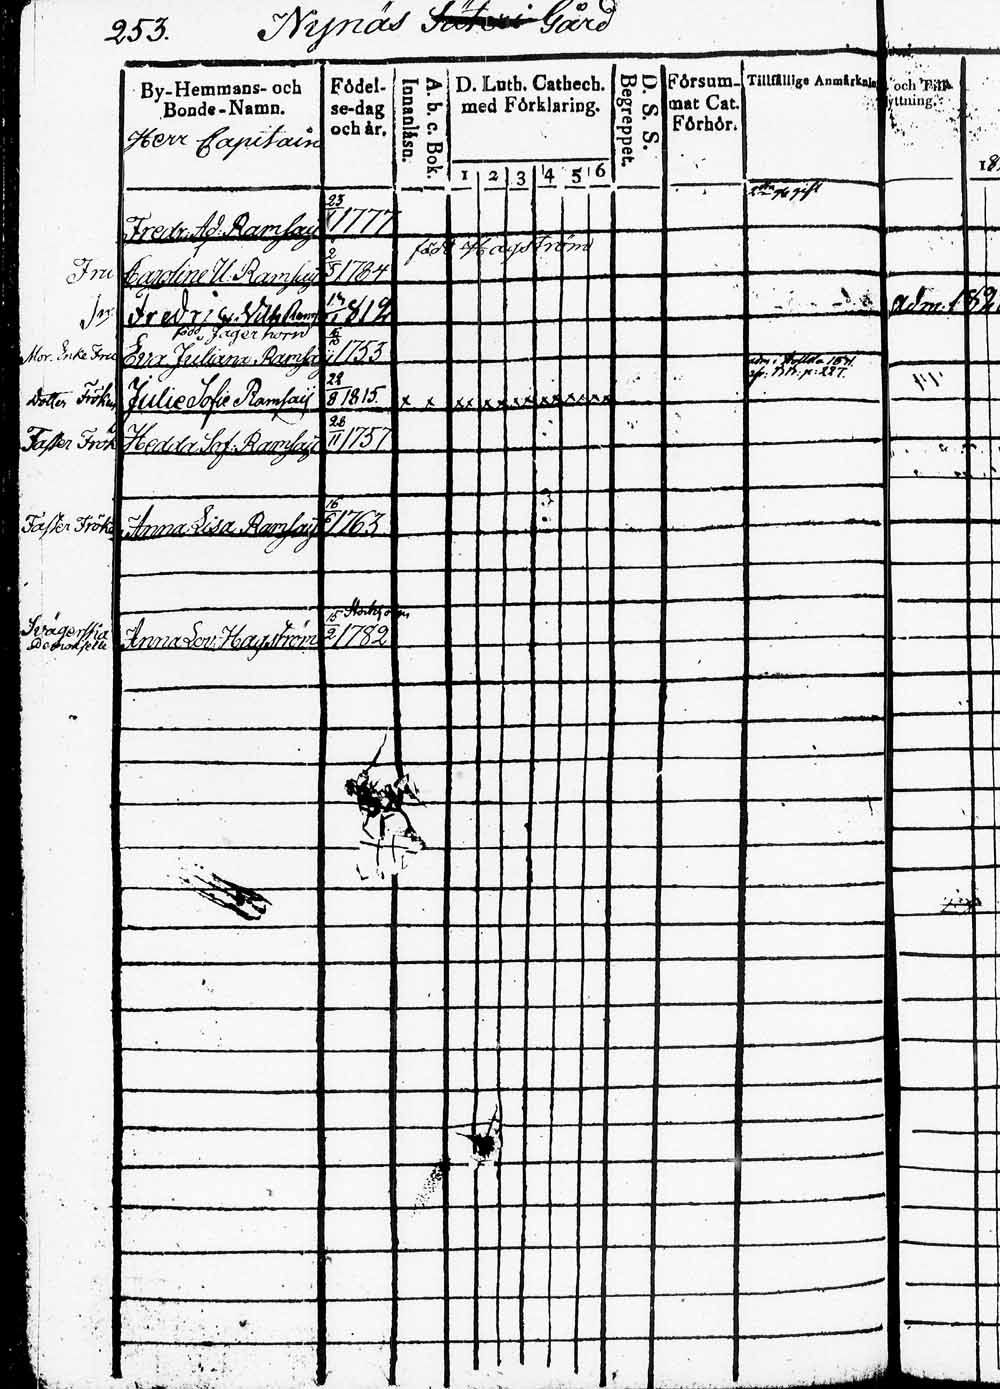 253. Nynäs Säteri Gård
By-Hemmans- och Bonde-Namn.
Födel-se-dag och år.
Innanläsn.
A. b. c. Bok.
D. Luth. Cathech. med Förklaring.
1 2 3 4 5 6
Begreppet.
D. S. S.
Försum-mat Cat. Förhör.
Tillfällige Anmärkn
och
yttning.
Herr Capitain
Fredr. Ad. Ramsay 23 1777 2dra gg gift
född Hagström
Fru Caroline U. Ramsay 2/5 1784
Fredric Vilh. Rams 1812 adm. 182
född Jägerhorn
Mor. Enke Fru Eva Juliana Ramsay 1753
Dotter Fröken Julie Sofie Ramsay 22/8 1815. x x xx xx xx xx xx xx
Faster Frök Hedda Sof. Ramsay 26/11 1757
Faster Frök Anna Lisa Ramsay 16/6 1763
Stockholm
Svägerska Demoiselle Anna Lov. Hagström 15/2 1782